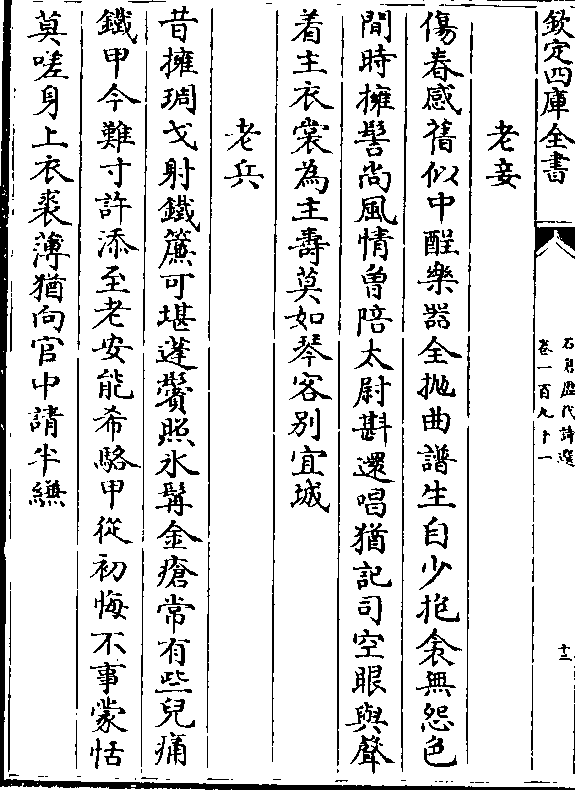 欽定四庫全書
石倉歷代詩選
卷一百九十一
十三
老妾
傷春感舊似中酲樂器全抛曲譜生自少抱衾無怨色
間時擁髻尚風情曽陪太尉斟還唱猶記司空眼與聲
着主衣裳為主壽莫如琴客别宜城
老兵
昔擁琱戈射鐵簾可堪蓬鬢照氷髯金瘡常有些兒痛
鐵甲今難寸許添至老安能希駱甲從初悔不事蒙恬
莫嗟身上衣裘薄猶向官中請半縑